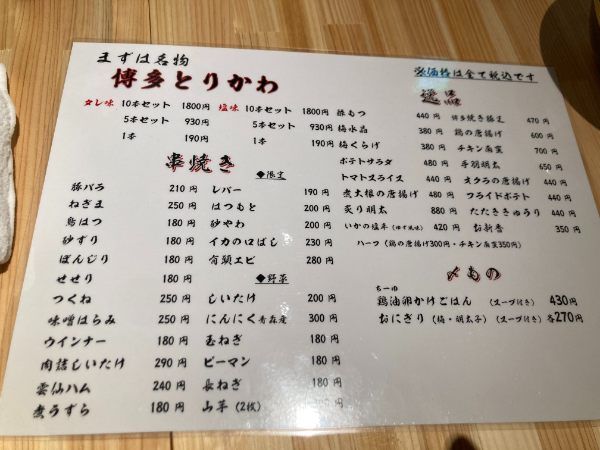 まずは名物
博多とりかわ
タレ味 10本セット 1800円 塩味 10本セット 1800円
5本セット 930円 5本セット 930円
1本 190円 1本 190円
串焼き
◆限定
豚バラ 210円 レバー 190円
ねぎま 250円 はつもと 200円
鳥はつ 180円 砂やわ 200円
砂ずり 180円 イカの口ばし 230円
ぼんじり 180円 有頭エビ 280円
せせり 180円 ◆野菜
つくね 250円 しいたけ 200円
味噌はらみ 250円 にんにく青森産 300円
ウインナー 180円 玉ねぎ 180円
肉詰しいたけ 290円 ピーマン 180円
雲仙ハム 240円 長ねぎ 180円
煮うずら 180円 山芋(2枚) 円
※価格は全て税込です
逸品
酢もつ 440円 博多焼き豚足 470円
梅水晶 380円 鶏の唐揚げ 600円
梅くらげ 380円 チキン南蛮 700円
ポテトサラダ 480円 手羽明太 650円
トマトスライス 350円 オクラの唐揚げ 440円
煮大根の唐揚げ 480円 フライドポテト 440円
炙り明太 880円 たたききゅうり 440円
いかの塩辛(ゆず風味) 420円 お新香 350円
ハーフ(鶏の唐揚げ300円・チキン南蛮350円)
〆もの
ちーゆ
鶏油卵かけごはん (スープ付き) 430円
おにぎり(梅・明太子)(スープ付き) 各270円